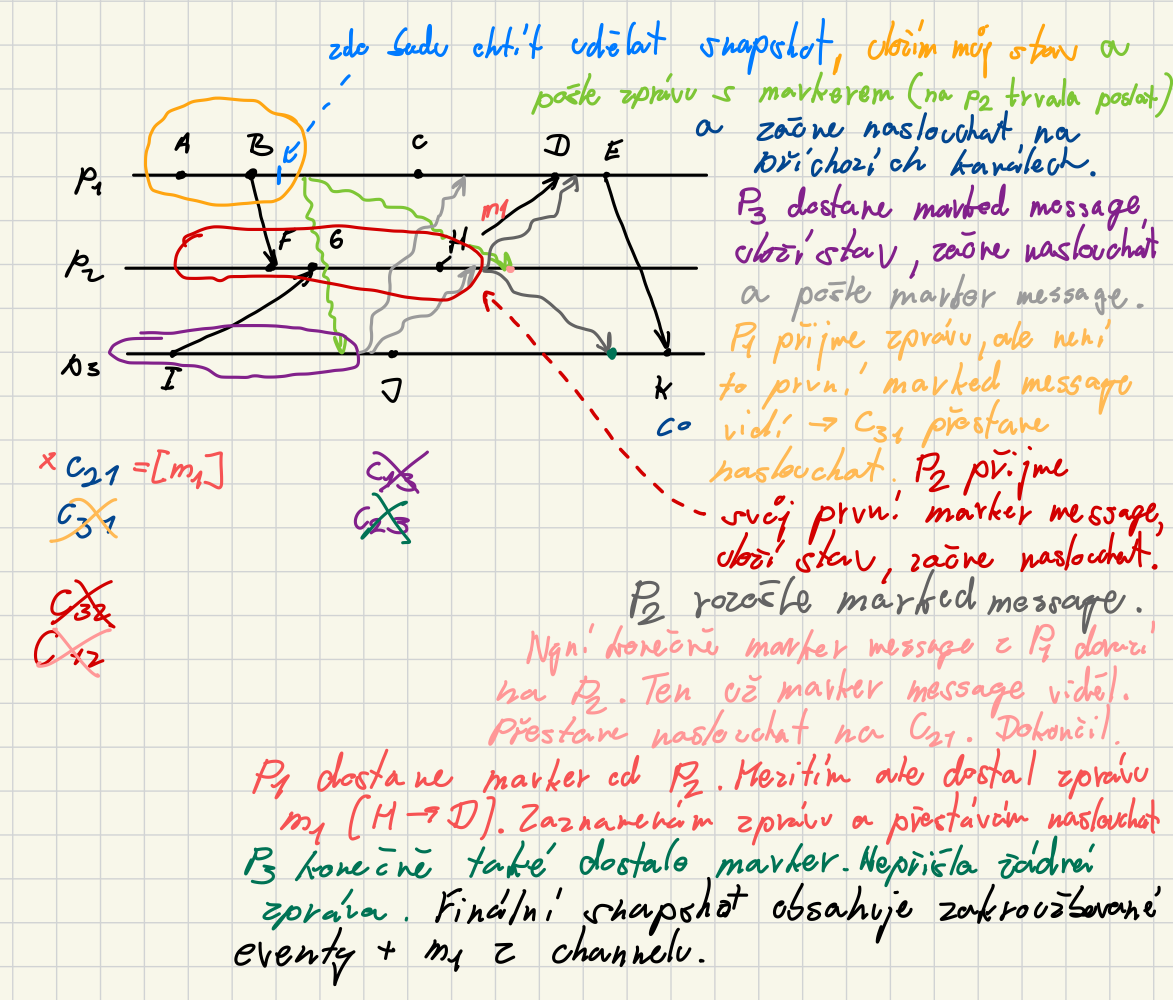 zde budu chtít udělat snapshot, uložím můj stav a
pošle zprávu s markerem (na P2 trvala poslat)
a začne naslouchat na
příchozích kanálech.
A B C D E
P1
m1
P3 dostane marked message,
uloží stav, začne naslouchat
F G H
P2
a pošle marker message.
P1 přijme zprávu, ale není
to první marked message
P3
I J K
co
vidí → C31 přestane
naslouchat. P2 přijme
x C21 = [m1]
C13
C31
C23
svůj první marker message,
uloží stav, začne naslouchat.
C32
P2 rozešle marked message.
C12
Nyní konečně marker message z P1 dorazí
na P2. Ten už marker message viděl.
Přestane naslouchat na C21. Dokončil.
P1 dostane marker od P2. Mezitím ale dostal zprávu
m1 (H → D). Zaznamenám zprávu a přestávám naslouchat
P3 konečně také dostalo marker. Nepřišla žádná
zpráva. Finální snapshot obsahuje zakroužkované
eventy + m1 z channelu.